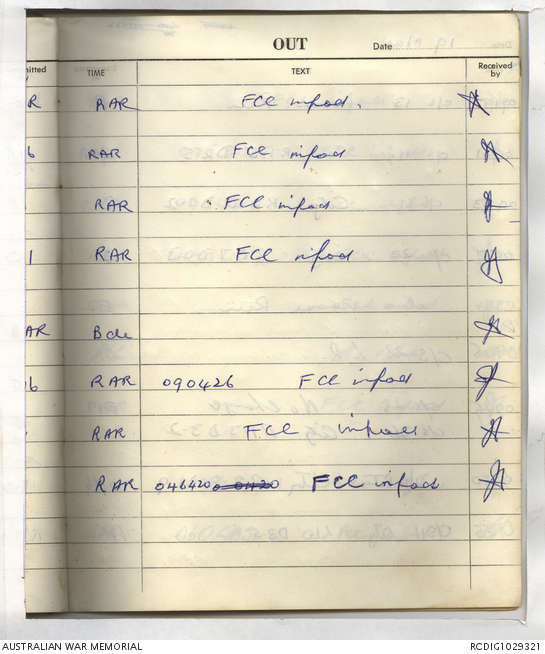 OUT Date
itted TIME TEXT Received by
R RAR FCL infod.
6 RAR FCL infod
RAR FCL infod
1 RAR FCL infod
AR Bde
6 RAR 090426 FCL infod
RAR FCL infod
RAR 046420 FCL infod
AUSTRALIAN WAR MEMORIAL RCDIG1029321